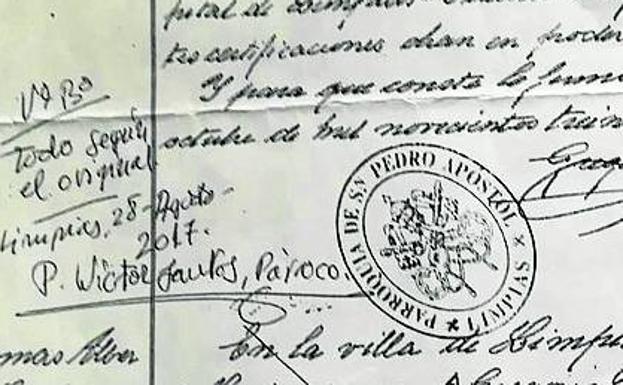 pital de Limpias
tres certificaciones obran en poder
Y para que conste lo firmo
octubre de mil novecientos trein
Vº Bº
Todo según
el original
Limpias, 28 - Agosto -
2017.
P. Wictor Santos, Párroco.
PARROQUIA DE SN PEDRO APOSTOL * LIMPIAS *
mas Alber
En la villa de Limpi